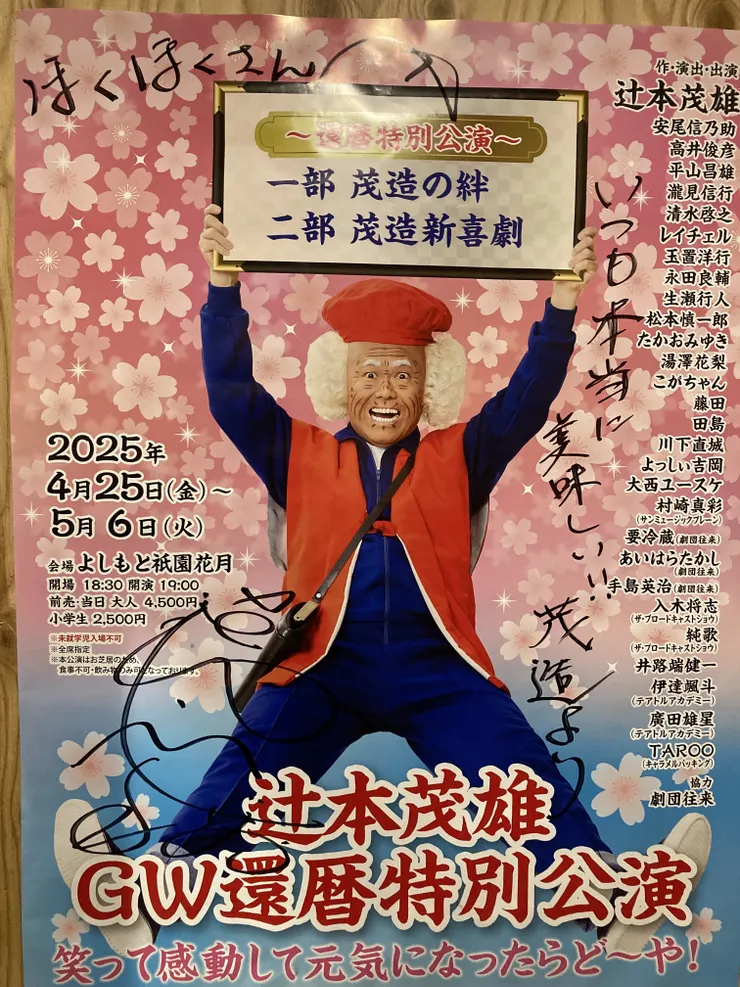 ほくほくさんへ
～還暦特別公演～
一部 茂造の絆
二部 茂造新喜劇
作・演出・出演
辻本茂雄
安尾信乃助
高井俊彦
平山昌雄
瀧見信行
清水啓之
レイチェル
玉置洋行
永田良輔
生瀬行人
松本慎一郎
たかおみゆき
湯澤花梨
こがちゃん
藤田
田島
川下直城
よっしぃ吉岡
大西ユースケ
村崎真彩
(サンミュージックブレーン)
要冷蔵(劇団往来)
あいはらたかし
(劇団往来)
手島英治(劇団往来)
入木将志
(ザ・ブロードキャストショウ)
純歌
(ザ・ブロードキャストショウ)
井路端健一
伊達颯斗
(テアトルアカデミー)
廣田雄星
(テアトルアカデミー)
TAROO
(キャラメルパッキング)
協力
劇団往来
いつも本当に
美味しい!!
茂造より
2025年
4月25日(金)～
5月6日(火)
会場 よしもと祇園花月
開場 18:30 開演 19:00
前売・当日 大人 4,500円
小学生 2,500円
※未就学児入場不可
※全席指定
※本公演はお芝居のため、
食事不可・飲み物のみ可となっております。
辻本茂雄
GW還暦特別公演
笑って感動して元気になったらど～や!